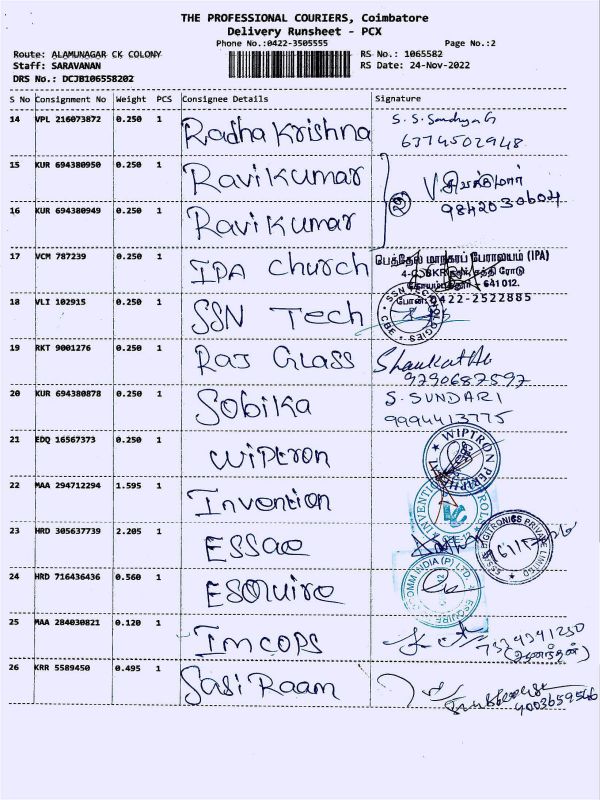 THE PROFESSIONAL COURIERS, Coimbatore
Delivery Runsheet - PCX
Phone No.:0422-3505555 Page No.:2
Route: ALAMUNAGAR CK COLONY RS No.: 1065582
Staff: SARAVANAN RS Date: 24-Nov-2022
DRS No.: DCJB106558202
S No Consignment No Weight PCS Consignee Details Signature
14 VPL 216073872 0.250 1 Radha Krishna S. S. Sandhya G
6374502948
15 KUR 694380950 0.250 1 Ravi Kumar
9842030604
16 KUR 694380949 0.250 1 Ravi Kumar
17 VCM 787239 0.250 1 IPA Church பெத்தேல் மாநகரப் பேராலயம் (IPA)
சத்தி ரோடு
கோயம்புத்தூர் - 641 012.
போன்: 0422-2522885
18 VLI 102915 0.250 1 SSN Tech SSN TECHNOLOGIES CBE
19 RKT 9001276 0.250 1 RAJ GLASS Shaukat Ali
9290687597
20 KUR 694380878 0.250 1 Sobika S. SUNDARI
9994413775
21 EDQ 16567373 0.250 1 Wiptron WIPTRON PERIPHERAL
22 MAA 294712294 1.595 1 Invention INVENTION CONTROL
23 HRD 305637739 2.205 1 ESSAE ESSAE DIGITRONICS PRIVATE LIMITED
24 HRD 716436436 0.560 1 ESQUIRE ESQUIRE COMM INDIA (P) LTD.
25 MAA 284030821 0.120 1 IMCOPS
(ஆனந்தன்)
26 KRR 5589450 0.495 1 Sasi Raam
9003659546